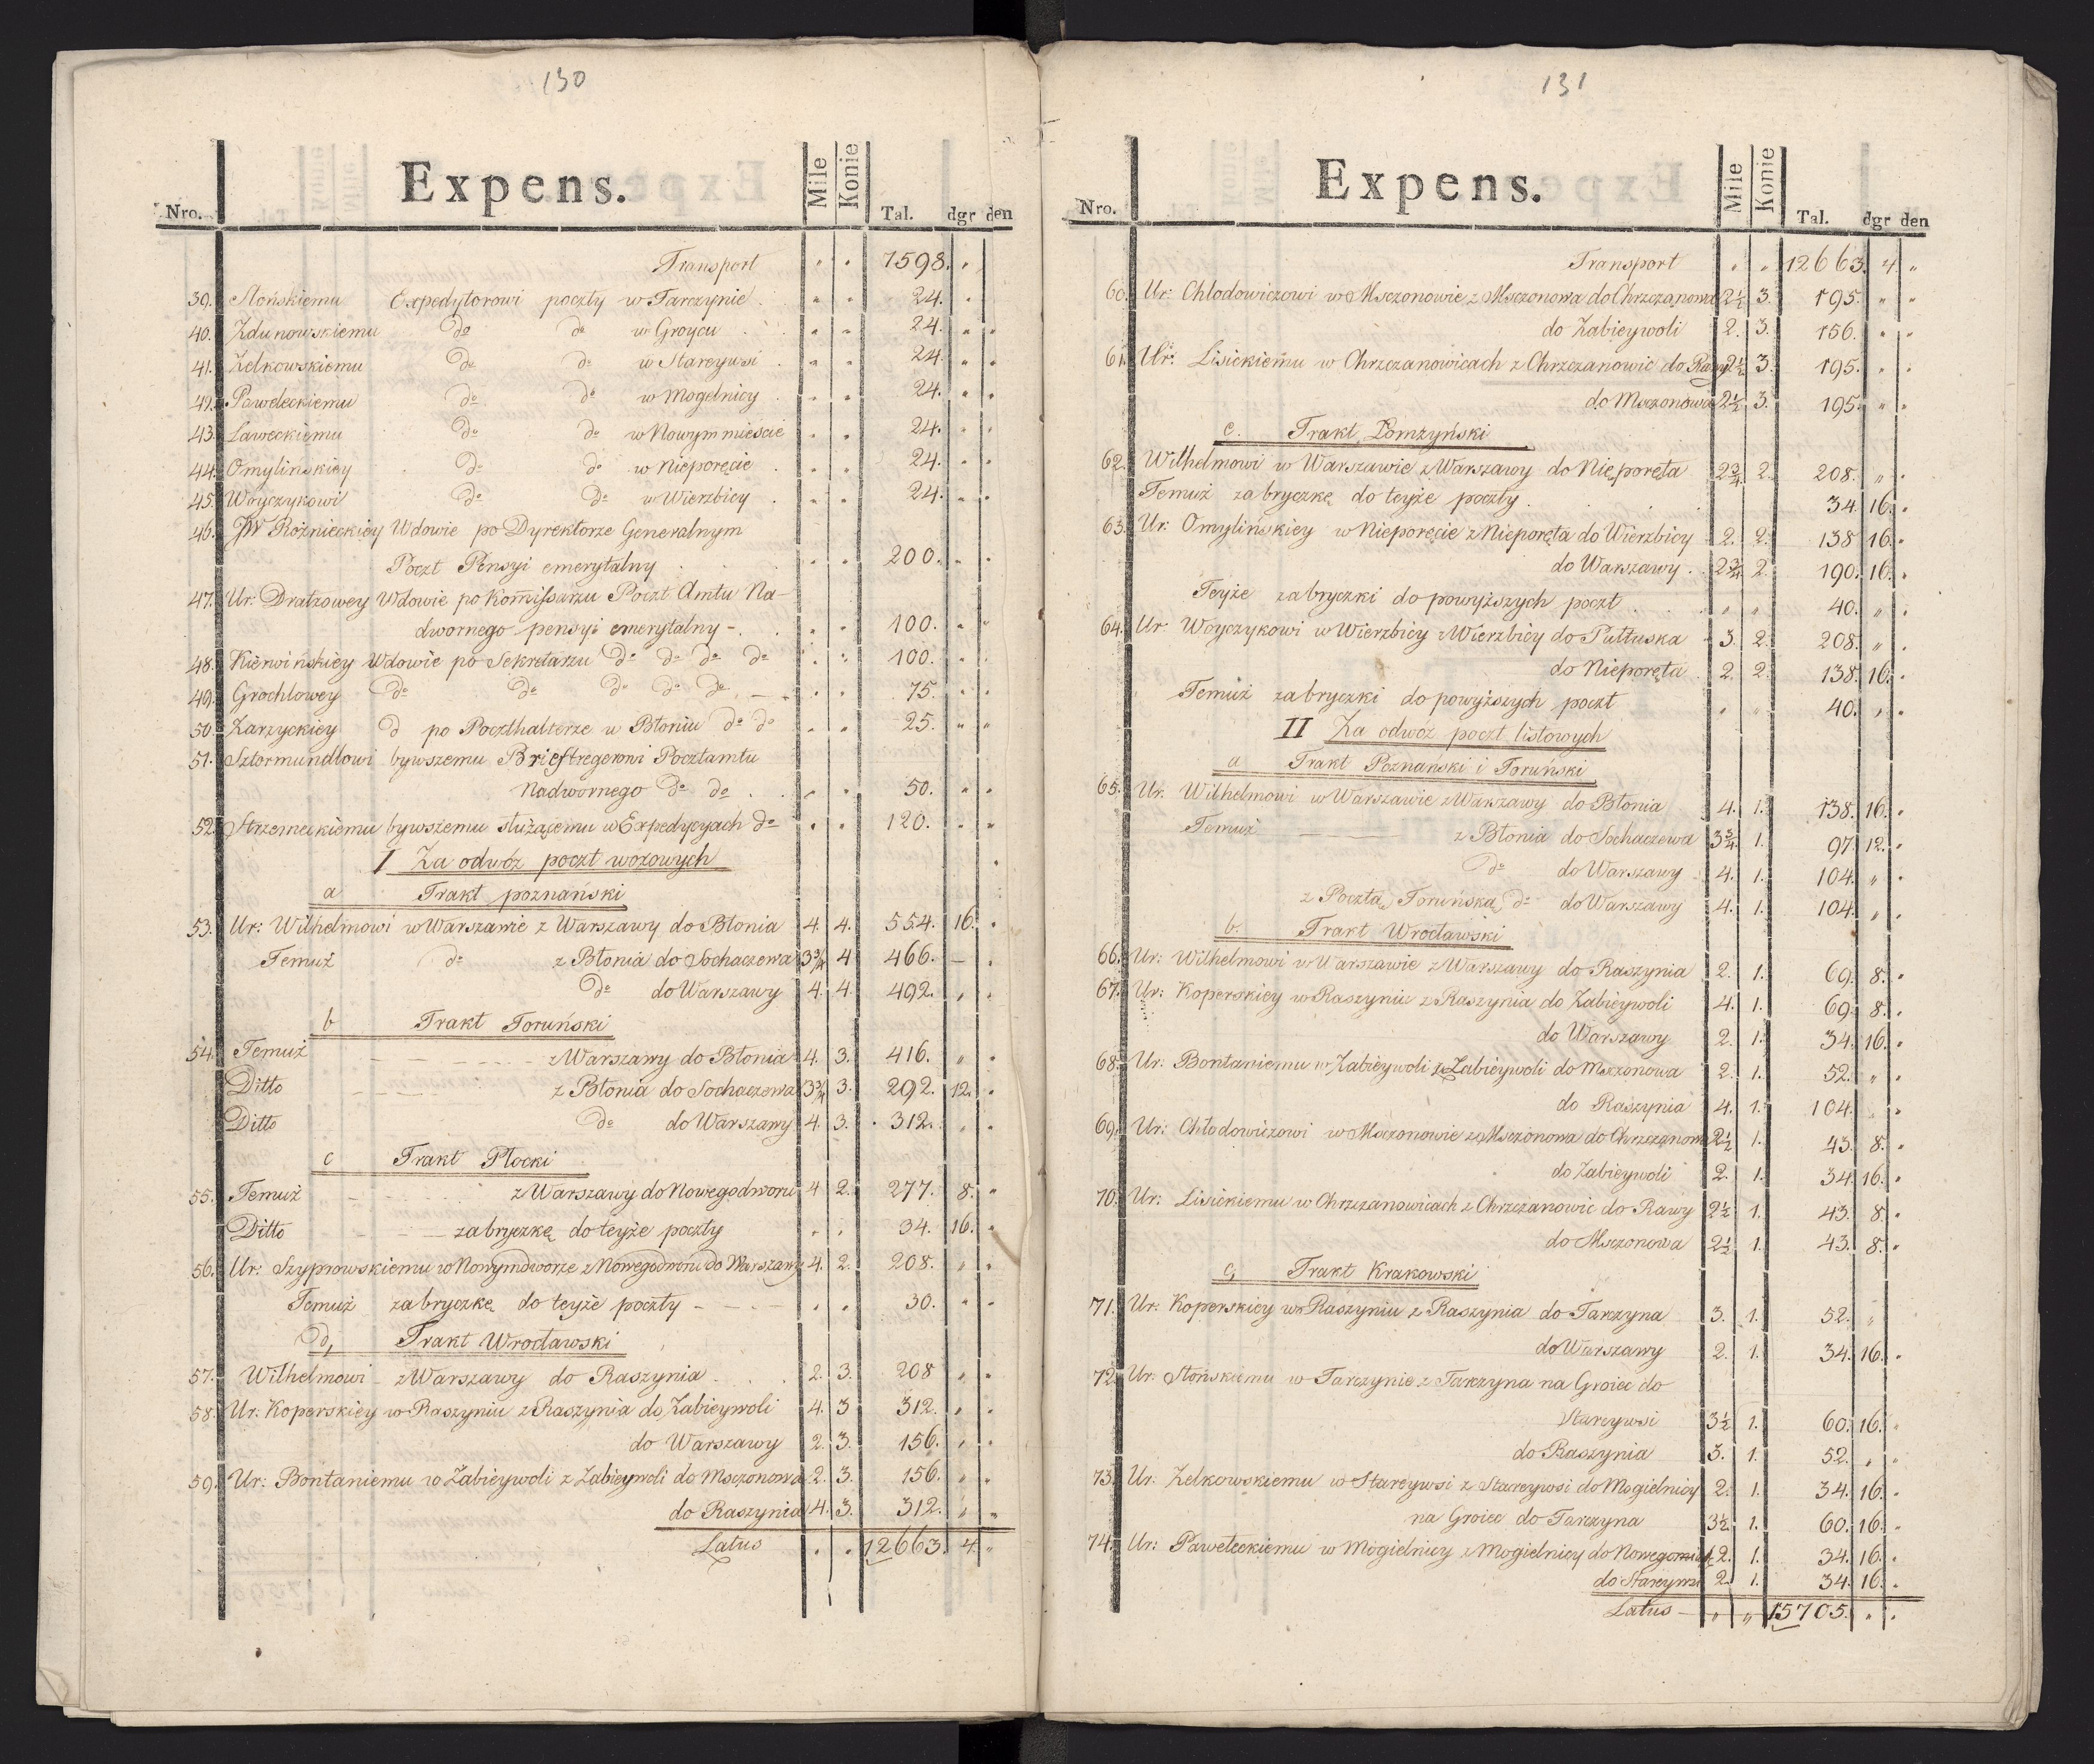 130
Nro. Expens. Mile Konie Tal. dgr den
Transport " " 7598. "
39. Słońskiemu Expedytorowi poczty w Tarczynie . " " 24. "
40. Zdunowskiemu do do w Groycu . . " " 24. " "
41. Zelkowskiemu do do w Stareywsi . " " 24. " "
42. Pawełeckiemu do do w Mogelnicy . " " 24. " "
43. Ławeckiemu do do w Nowym mieście " " 24. " "
44. Omylińskiey do do w Nieporęcie . " " 24. " "
45. Woyczykowi do do w Wierzbicy . " " 24. " "
46. JW Rożnieckiey Wdowie po Dyrektorze Generalnym
Poczt Pensyi emerytalny . . . " " 200. " "
47. Ur: Dratzowey Wdowie po Kommissarzu Poczt Amtu Na-
dwornego pensyi emerytalny - . . " " 100. " "
48. Kierwińskiey Wdowie po Sekretarzu do do do do " " 100. " "
49. Grochlowey do do do do do - . " " 75. " "
50. Zarzyckiey d po Poczthalterze w Błoniu do do " " 25. " "
51. Sztormundtowi bywszemu Brieftregerowi Pocztamtu
Nadwornego do do . . " " 50. " "
52. Strzemeckiemu bywszemu służącemu w Expedycyach do " " 120. " "
I Za odwóz poczt wozowych
a Trakt poznański
53. Ur: Wilhelmowi w Warszawie z Warszawy do Błonia 4. 4. 554. 16. "
Temuż do z Błonia do Sochaczewa 3¾ 4 466. — .
do do Warszawy 4. 4. 492. " "
b Trakt Toruński
54. Temuż - - - - z Warszawy do Błonia 4. 3. 416. " "
Ditto - - - z Błonia do Sochaczewa 3¾ 3. 292. 12. "
Ditto do do Warszawy 4. 3. 312. " "
c Trakt Płocki
55. Temuż - - - z Warszawy do Nowegodworu 4 2. 277. 8. "
Ditto - - - za bryczkę do teyże poczty " " 34. 16. "
56. Ur: Szyprowskiemu w Nowymdworze z Nowegodworu do Warszawy 4. 2. 208. " "
Temuż za bryczkę do teyże poczty - - - " " 30. " "
d, Trakt Wrocławski
57. Wilhelmowi - z Warszawy do Raszynia . . . 2. 3. 208 " "
58. Ur: Koperskiey w Raszyniu z Raszynia do Zabieywoli 4. 3 312. " "
do Warszawy 2. 3. 156. " "
59. Ur: Bontaniemu w Zabieywoli z Zabieywoli do Mszczonowa 2. 3. 156. " "
do Raszynia 4. 3. 312. " "
Latus " " 12663. 4. "
131
Nro. Expens. Mile Konie Tal. dgr den
Transport " " 12663. 4 "
60. Ur: Chłodowiczowi w Msczonowie z Msczonowa do Chrzczanowa 2½ 3. 195. " "
do Zabieywoli 2. 3. 156. " "
61. Ur: Lisickiemu w Chrzczanowicach z Chrzczanowic do Rawy 2½ 3. 195. " "
do Msczonowa 2½ 3. 195. " "
e. Trakt Łomżyński
62. Wilhelmowi w Warszawie z Warszawy do Nieporęta 2¾ 2. 208. " "
Temuż za bryczkę do teyże poczty . . . . 34. 16. "
63. Ur: Omylińskiey w Nieporęcie z Nieporęta do Wierzbicy 2. 2. 138 16. "
do Warszawy . 2¾ 2. 190. 16. "
Teyże za bryczki do powyższych poczt . . . " " 40. " "
64. Ur: Woyczykowi w Wierzbicy z Wierzbicy do Pułtuska 3. 2. 208. " "
do Nieporęta . 2. 2. 138. 16. "
Temuż za bryczki do powyższych poczt " " 40. " "
II Za odwóz poczt listowych
a Trakt Poznański i Toruński
65. Ur. Wilhelmowi w Warszawie z Warszawy do Błonia 4. 1. 138. 16. "
Temuż — z Błonia do Sochaczewa 3¾ 1. 97. 12. "
do do Warszawy . 4. 1. 104. " "
z Pocztą Toruńską do do Warszawy 4. 1. 104. " "
b. Trakt Wrocławski
66. Ur: Wilhelmowi w Warszawie z Warszawy do Raszynia 2. 1. 69. 8. "
67. Ur: Koperskiey w Raszyniu z Raszynia do Zabieywoli 4. 1. 69. 8. "
do Warszawy 2. 1. 34. 16. "
68. Ur: Bontaniemu w Zabieywoli z Zabieywoli do Msczonowa 2. 1. 52. " "
do Raszynia 4. 1. 104. " "
69. Ur: Chłodowiczowi w Msczonowie z Msczonowa do Chrzczanowa 2½ 1. 43. 8. "
do Zabieywoli 2. 1. 34. 16. "
70. Ur: Lisickiemu w Chrzczanowicach z Chrzczanowic do Rawy 2½ 1. 43. 8. "
do Msczonowa 2½ 1. 43. 8. "
c, Trakt Krakowski
71. Ur: Koperskiey w Raszyniu z Raszynia do Tarczyna 3. 1. 52. "
do Warszawy 2. 1. 34. 16. "
72. Ur: Słońskiemu w Tarczynie z Tarczyna na Groiec do
Stareywsi 3½ 1. 60. 16. "
do Raszynia 3. 1. 52. " "
73. Ur: Zelkowskiemu w Stareywsi z Stareywsi do Mogielnicy 2. 1. 34. 16. "
na Groiec do Tarczyna 3½ 1. 60. 16. "
74. Ur: Pawełeckiemu w Mogielnicy z Mogielnicy do Nowegomiasta 2. 1. 34. 16. "
do Stareywsi 2. 1. 34. 16. "
Latus — " " 15705. " "